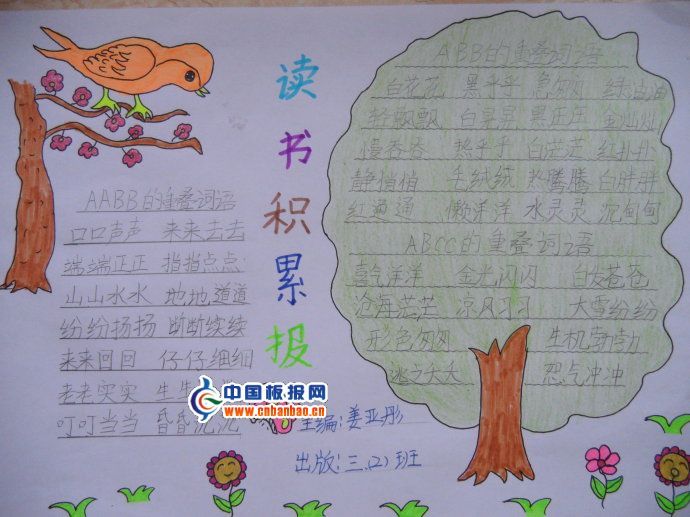 读书积累报
AABB的重叠词语
口口声声 来来去去
端端正正 指指点点
山山水水 地地道道
纷纷扬扬 断断续续
来来回回 仔仔细细
老老实实 生生
叮叮当当 昏昏沉沉
ABB的重叠词语
白花花 黑乎乎 急匆匆 绿油油
轻飘飘 白皑皑 金灿灿
慢吞吞 热乎乎 白茫茫 红扑扑
静悄悄 毛绒绒 热腾腾 白胖胖
红通通 懒洋洋 水灵灵 沉甸甸
ABCC的重叠词语
喜气洋洋 金光闪闪 白发苍苍
沧海茫茫 凉风习习 大雪纷纷
形色匆匆 生机勃勃
逃之夭夭 怒气冲冲
中国板报网
www.cnbanbao.cn
主编:姜亚彤
出版:三.(2)班